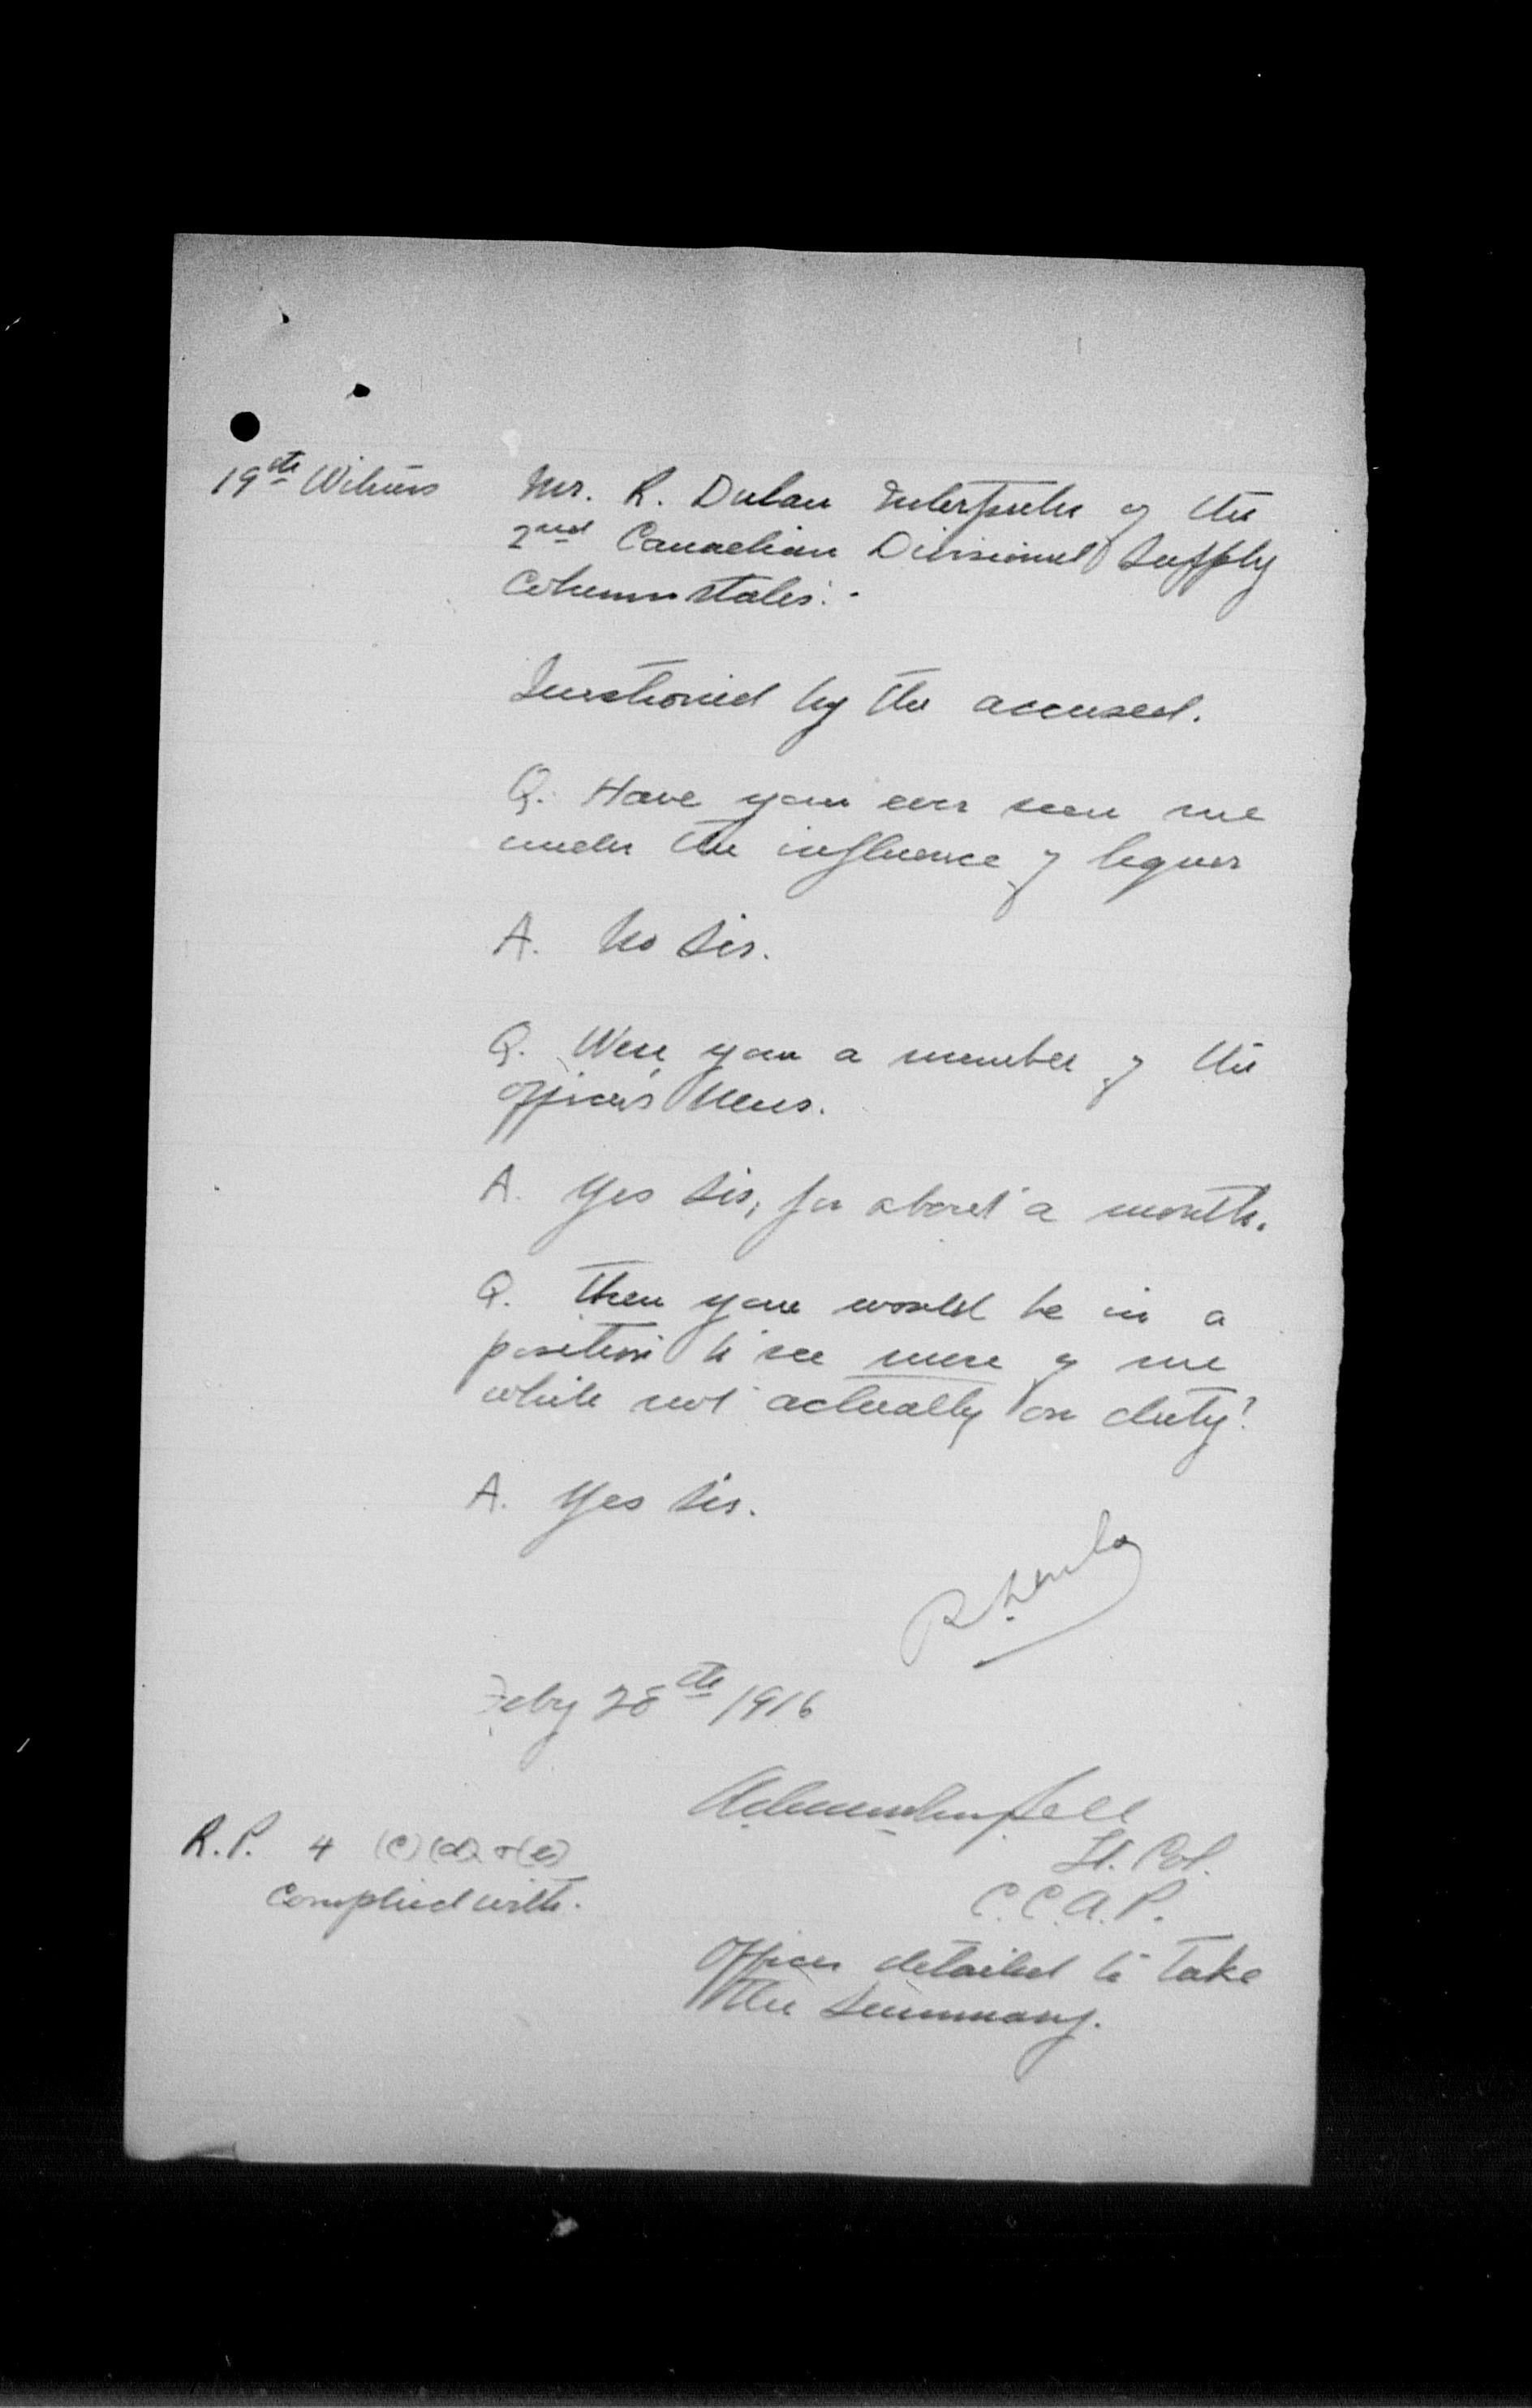 19th Witness
Mr. R. Dulau Interpreter of the
2nd Canadian Divisional Supply
Column states:-
Questioned by the accused.
Q. Have you ever seen me
under the influence of liquor
A. No Sir.
Q. Were you a member of the
Officer's Mess.
A. Yes Sir, for about a month.
Q. Then you would be in a
position to see more of me
while not actually on duty?
A. Yes Sir.
Feby 28th 1916
Lt. Col.
R.P. 4 (c) (d) & (e)
Complied with.
C.C.A.P.
Officer detailed to take
the Summary.